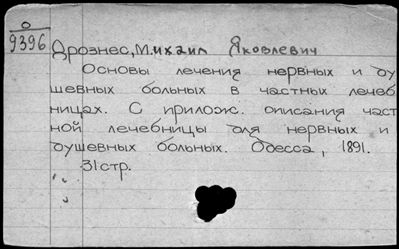 О
9396
Дрознес, Михаил Яковлевич
Основы лечения нервных и ду
шевных больных в частных лечеб
ницах. С прилож. описания част
ной лечебницы для нервных и
душевных больных. Одесса, 1891.
31 стр.